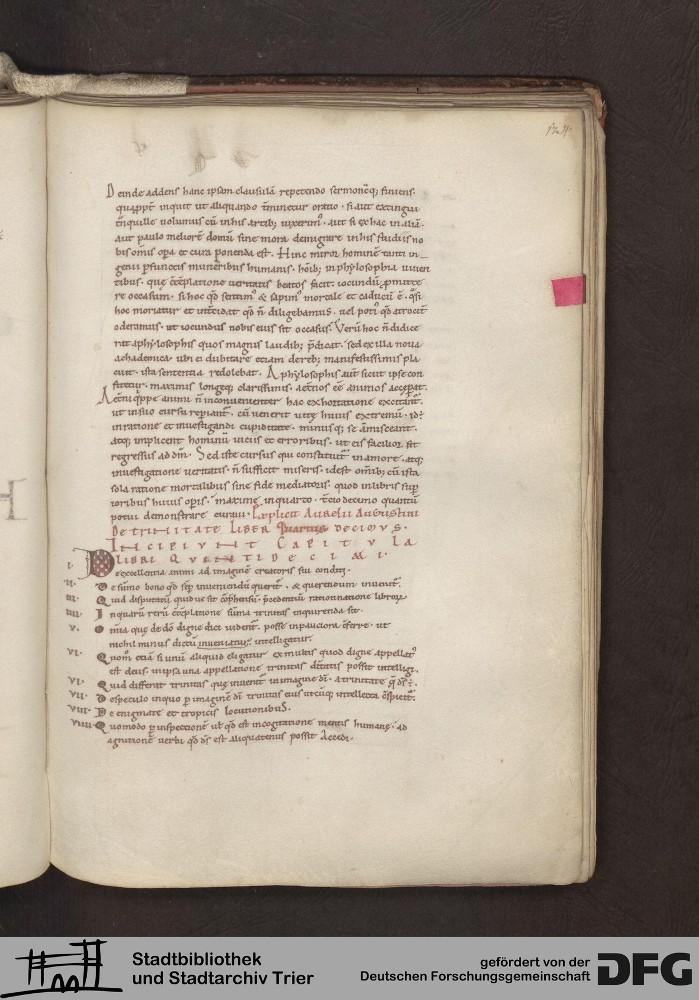 Deinde addens hanc ipsam clausulā repetendo sermonēq; finiens.
quappt̄ inquit ut aliquando t̄minetur oratio. si aut extingui
t̄nquille volumus cū in his artib; vixerim᾽. aut si ex hac in aliā.
aut paulo meliorē domū sine mora demigrare in his studiis no
bis om̄is op̄a et cura ponenda est. Hinc miror hominē tanti in
genii p̄functis muneribus humanis. hoīb; in phylosophia viven
tibus. que c̄tēplatione veritatis beatos facit. iocundū p̄mitte
re occasum. si hoc qd̄ sentim᾽ & sapim᾽ mortale et caducū ē. q̄si
hoc moriatur et intcidat qd̄ n̄ diligebamus. vel poti᾽ qd̄ atrocit̄
oderamus. ut iocundus nobis eius sit occasus. Verū hoc n̄ didice
rat a phylosophis quos magnis laudib; p̄dicat. sed ex illa nova
achademica. ubi ei dubitare etiam de reb; manifestissimis pla
cuit. ista sententia redolebat. A phylosophis aut̄ sicut ipse con
fitetur. maximis longeq; clarissimis. aet̄nos eē animos accep̄at.
Aet̄ni q̄ppe animi n̄ inconvenienter hac exhortatione excitant̄.
ut in suo cursu rep̄iant̄. cū venerit vite huius extremū. id:
in ratione et investigandi cupiditate. minus q; se āmisceant.
atq; implicent hominū viciis et erroribus. ut eis facilior sit
regressus ad dm̄. Sed iste cursus qui constituit̄ in amore. atq;
investigatione veritatis. n̄ sufficit miseris. id est om̄ib; cū ista
sola ratione mortalibus sine fide mediatoris. quod in libris sup̄
ioribus huius op̄is. maxime in quarto. t̄cio decimo quantū
potui demonstrare curavi. Explicit Aurelii Augustini
De trinitate liber quartus decimus.
Incipiunt Capitula
libri Quinti decimi.
I. De excellentia animi ad imaginē creatoris sui conditi.
II. De sūmo bono qd̄ semp̄ inveniendū querit̄. & querendum invenit̄.
III. Quid disputatū quidve sit cōp̄hensū. p̄cedentiū ratiocinatione librorū
IIII. In quarū rerū c̄tēplatione sūma trinitas inquirenda sit.
V. Omia que de dō digne dici vident̄. posse in pauciora c̄ferre. ut
nichil minus dictū inveniatur. intelligatur.
VI. Quom̄ etiā si unū aliquid eligatur ex multis quod digne appellet᾽
est deus. in ipsa una appellatione trinitas d̄itatis possit intelligi.
VI. Quid differat trinitas que invenit̄ in imagine dī. a trinitate q̄ ds̄:.
VII. De speculo in quo p̄ imaginē dī trinitas eius utcūq; intellecta c̄spicit̄.
VIII. De enigmate et tropicis locutionibus.
VIIII. Quomodo p̄ inspectionē ut qd̄ est in cogitatione mentis humane. ad
agnitionē verbi qd̄ ds̄ est aliquatenus possit accedi.
Stadtbibliothek
und Stadtarchiv Trier
gefördert von der
Deutschen Forschungsgemeinschaft
DFG